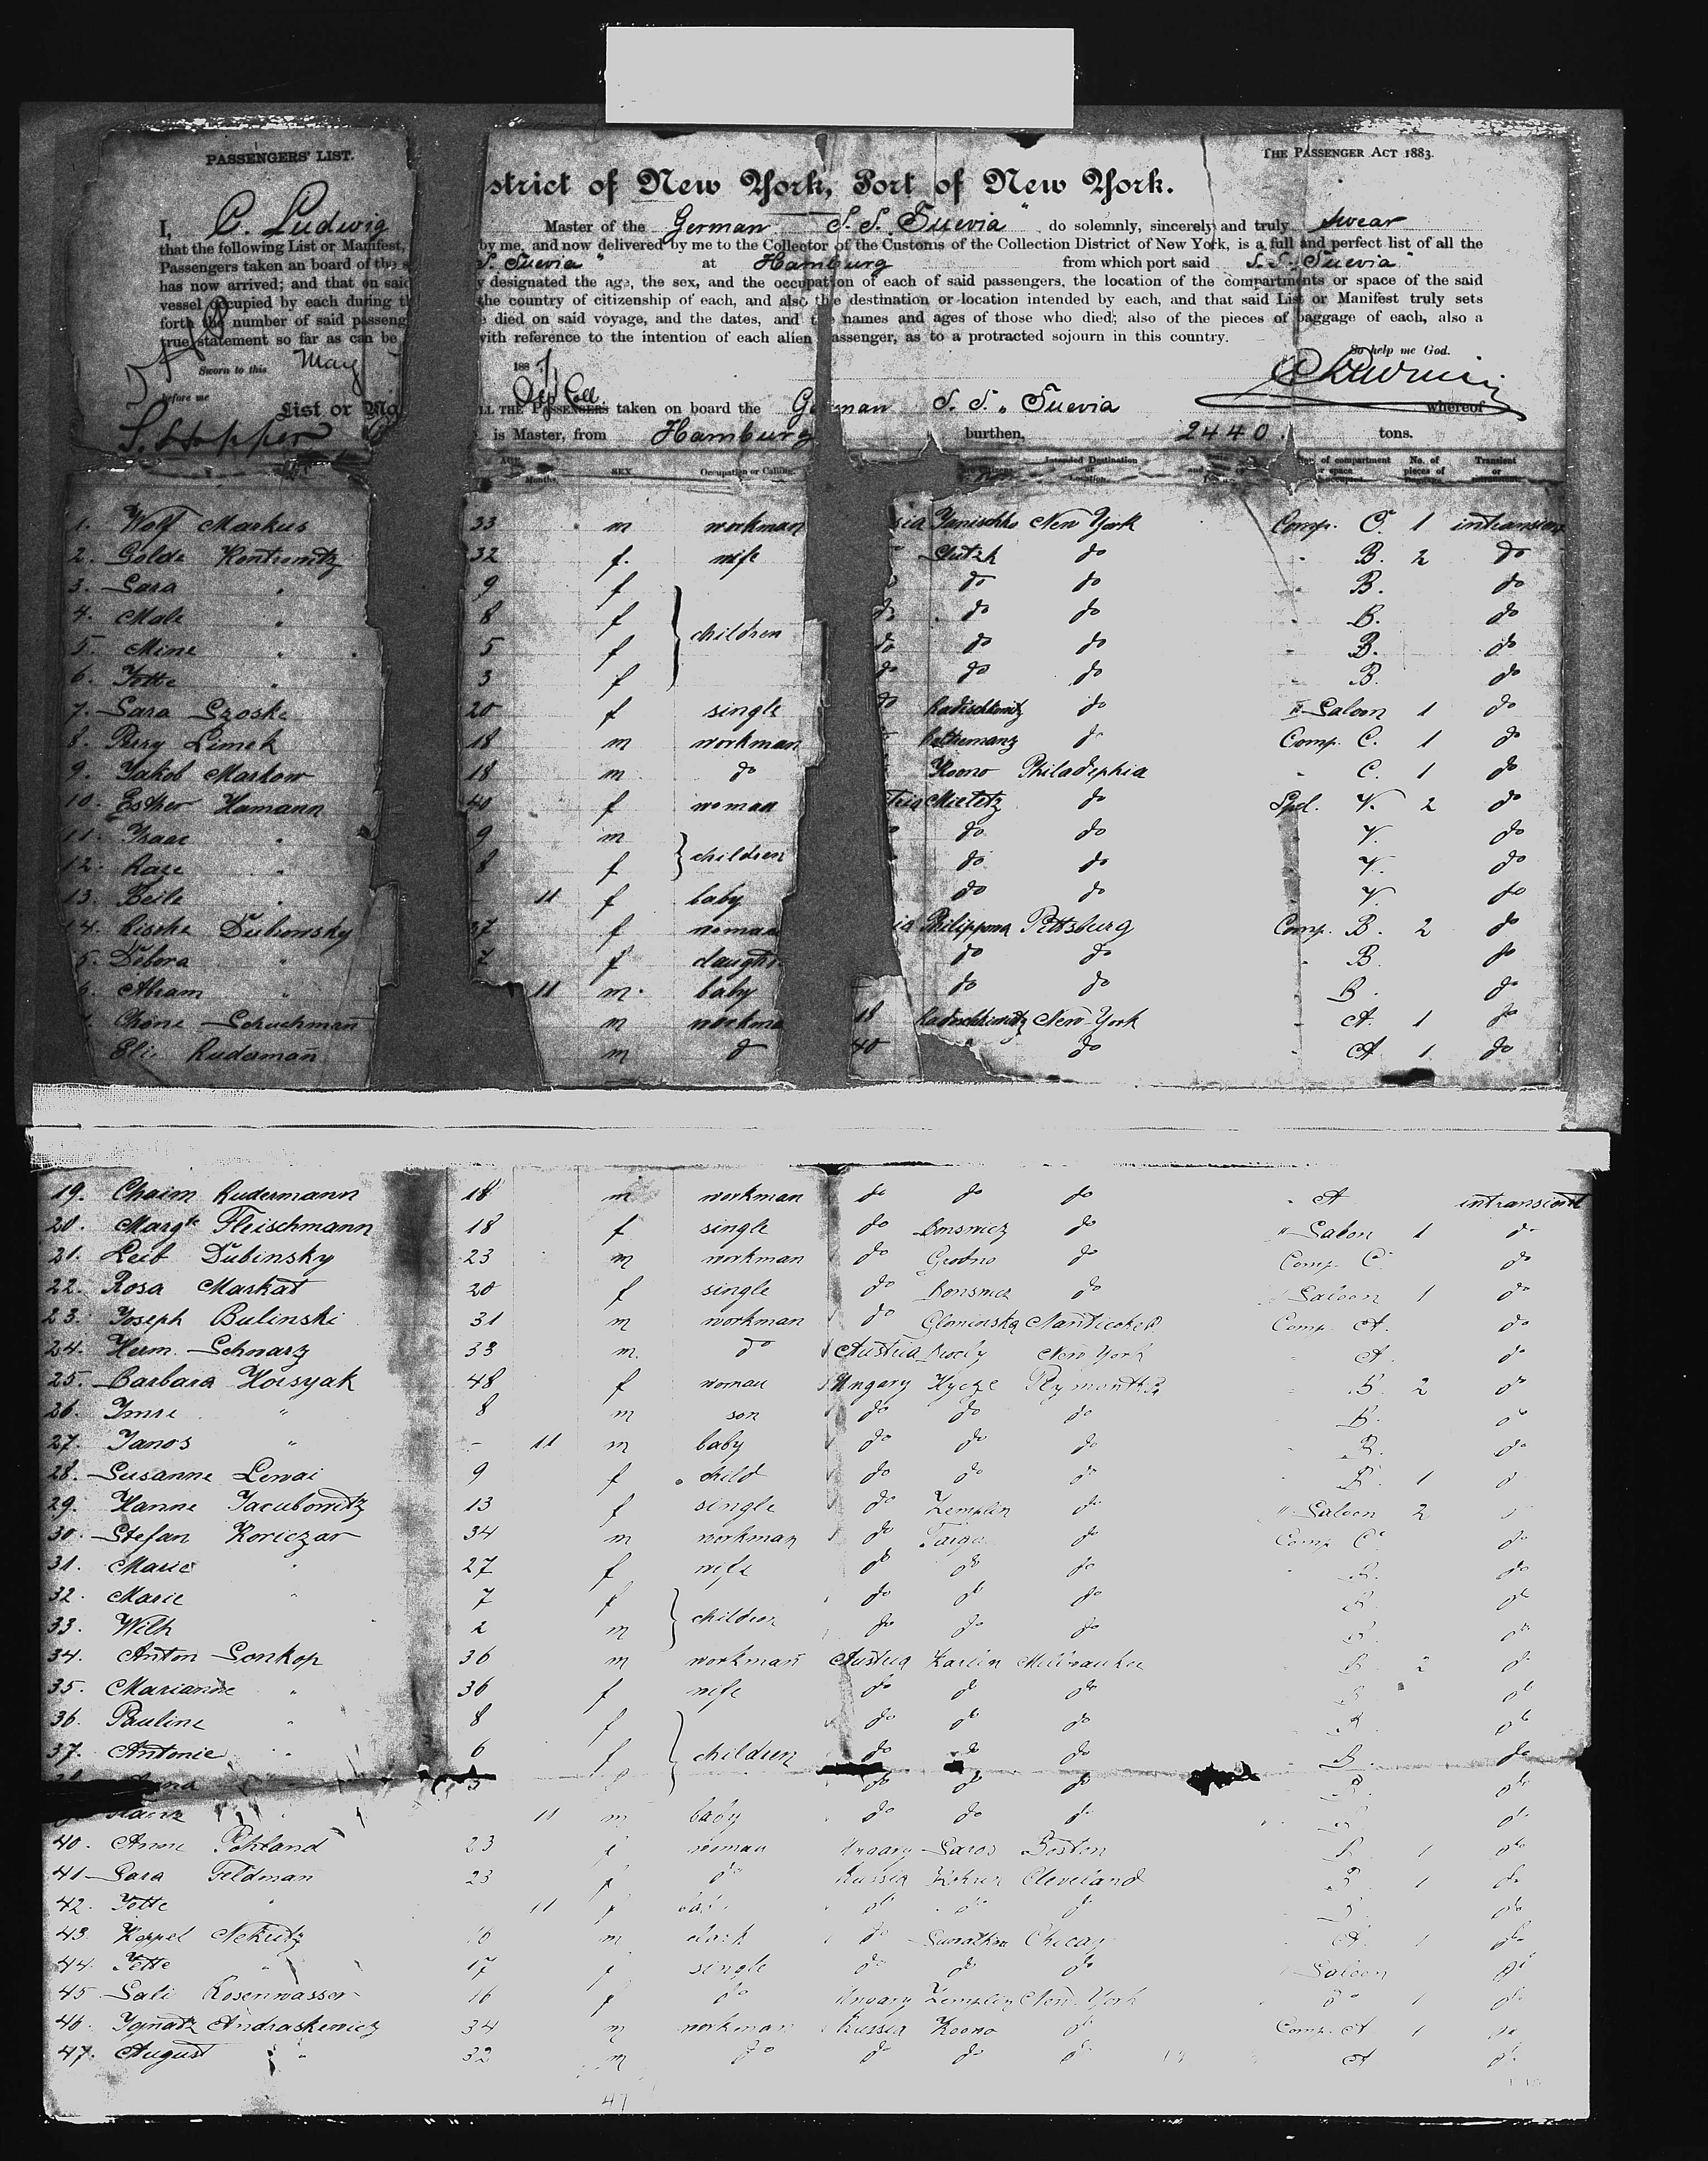 PASSENGERS' LIST.
THE PASSENGER ACT 1883.
strict of New York, Port of New York.
I, C. Ludwig Master of the German S. S. "Suevia" do solemnly, sincerely and truly swear
that the following List or Manifest, by me, and now delivered by me to the Collector of the Customs of the Collection District of New York, is a full and perfect list of all the
Passengers taken an board of the S. Suevia" at Hamburg from which port said S. S. "Suevia"
has now arrived; and that on said y designated the age, the sex, and the occupation of each of said passengers, the location of the compartments or space of the said
vessel occupied by each during the country of citizenship of each, and also the destination or location intended by each, and that said List or Manifest truly sets
forth the number of said passeng died on said voyage, and the dates, and the names and ages of those who died; also of the pieces of baggage of each, also a
true statement so far as can be with reference to the intention of each alien passenger, as to a protracted sojourn in this country.
So help me God.
Sworn to this May 1887
before me
List or Ma LL THE PASSENGERS taken on board the German S. S. "Suevia whereof
is Master, from Hamburg burthen, 2440. tons.
Months. SEX Occupation or Calling. Intended Destination or Location. of compartment or space No. of pieces of Transient or
1. Wolf Markus 33 m workman New York Comp. C. 1
2. Golde 32 f. wife Slutzk do B. 2 do
3. Sara " 9 f do do B. do
4. Male " 8 f children do do do B. do
5. Mine " 5 f do do do B. do
6. Jette " 3 f do do do B. do
7. Sara Szoske 20 f single do do " Saloon 1 do
8. Limek 18 m workman do Comp. C. 1 do
9. Jakob Markow 18 m do Kowno Philadephia " C. 1 do
10. Esther Hamann 40 f woman do V. 2 do
11. Isaac " 9 m do do V. do
12. " 8 f children do do V. do
13. Beile " 11 f baby do do V. do
14. Rische Dubonsky 37 f woman Pittsburg Comp. B. 2 do
5. Debora " 7 f daught do do B. do
6. Abram " 11 m. baby do do B. do
Chone Schuchmañ m workma 18 New-York A. 1 do
Eli Rudermañ m do 40 " do A 1 do
19. Chaim Rudermann 18 m workman do do do " A intransient
20. Margte Fleischmann 18 f single do do " Saloon 1 do
21. Leib Dubinsky 23 m workman do Grobno do Comp. C. do
22. Rosa Markat 20 f single do do Saloon 1 do
23. Joseph Bulinski 31 m workman do Comp. A. do
24. Herm. Schwarz 33 m. do Austria Brody New York " A. do
25. Barbara 48 f woman Ungary B. 2 do
26. Imre " 8 m son do do do B. do
27. Janos " - 11 m baby do do do B. do
28. Susanne Lewai 9 f child do do do B. 1
29. Hanne Jacubowitz 13 f single do Zemplin do " Saloon 2
30. Stefan Koriczar 34 m workman do do Comp. C. do
31. Marie " 27 f wife do do do B. do
32. Marie " 7 f do do do B. do
33. Wilh 2 m children do do do B. do
34. Anton Sonkop 36 m workmañ Austria B. 2 do
35. Marianne " 36 f wife do do do B. do
36. Pauline " 8 f do do do B. do
37. Antonie " 6 f children do do do B. do
Anna 5 f do do do B. do
" 11 m baby do do do do
40. Anne 23 f woman Ungary Saros Boston B. 1 do
41 Sara Feldman 23 f do Russia Cleveland B. 1 do
42. Jotte " 11 f do do do do
43. Koppel m do A. 1 do
44. Jette " 17 f single do do do Saloon do
45. Sali Rosenwasser 16 f do Ungary Zemplin New-York do 1 do
46. Ignatz Andraskewicz 34 m workman Russia Kowno do Comp. A 1 do
47. August " 32 m do do do do A do
47